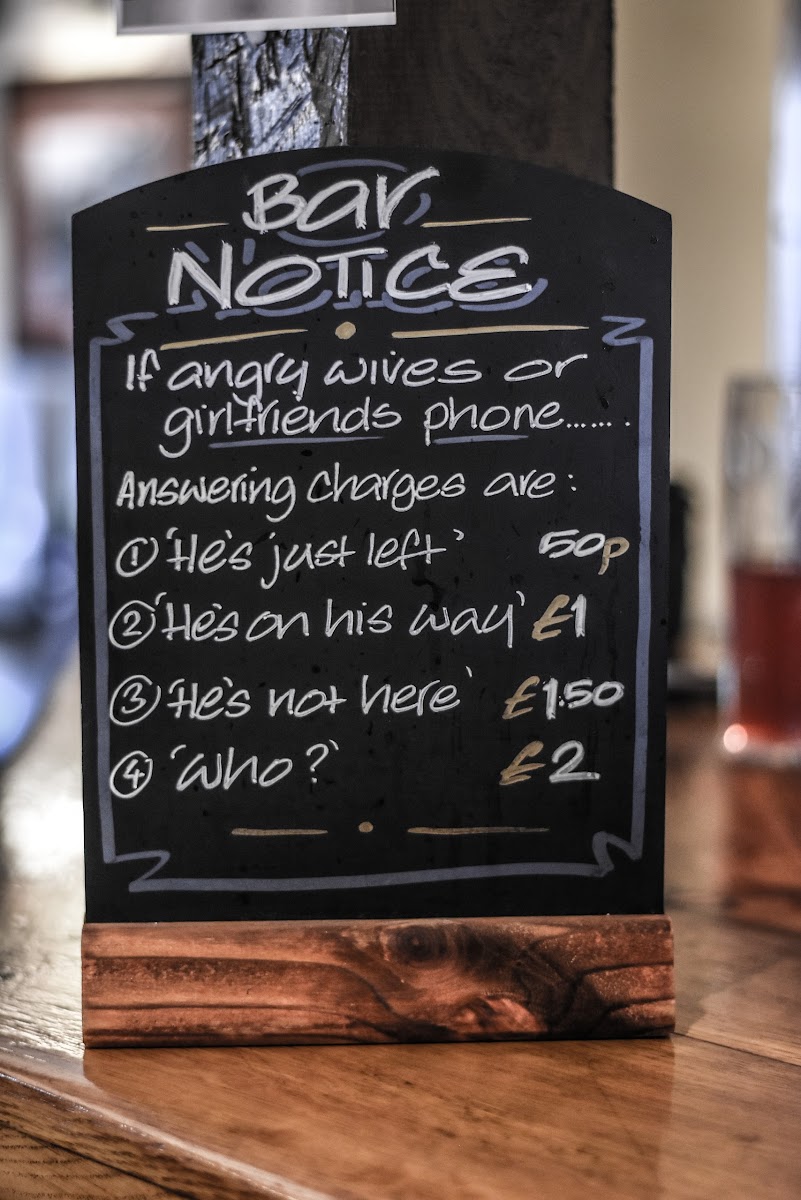 Bar
NOTICE
If angry wives or
girlfriends phone.......
Answering charges are:
① 'He's just left' 50p
② 'He's on his way' £1
③ 'He's not here' £1.50
④ 'Who?' £2